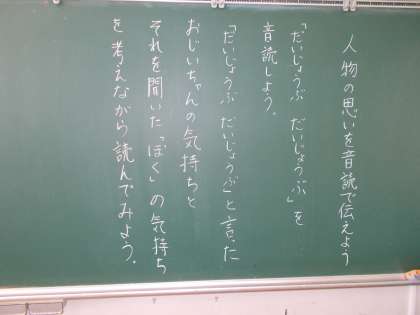 人物の思いを音読で伝えよう
「だいじょうぶ だいじょうぶ」を
音読しよう。
「だいじょうぶ だいじょうぶ」と言った
おじいちゃんの気持ちと
それを聞いた「ぼく」の気持ち
を考えながら読んでみよう。